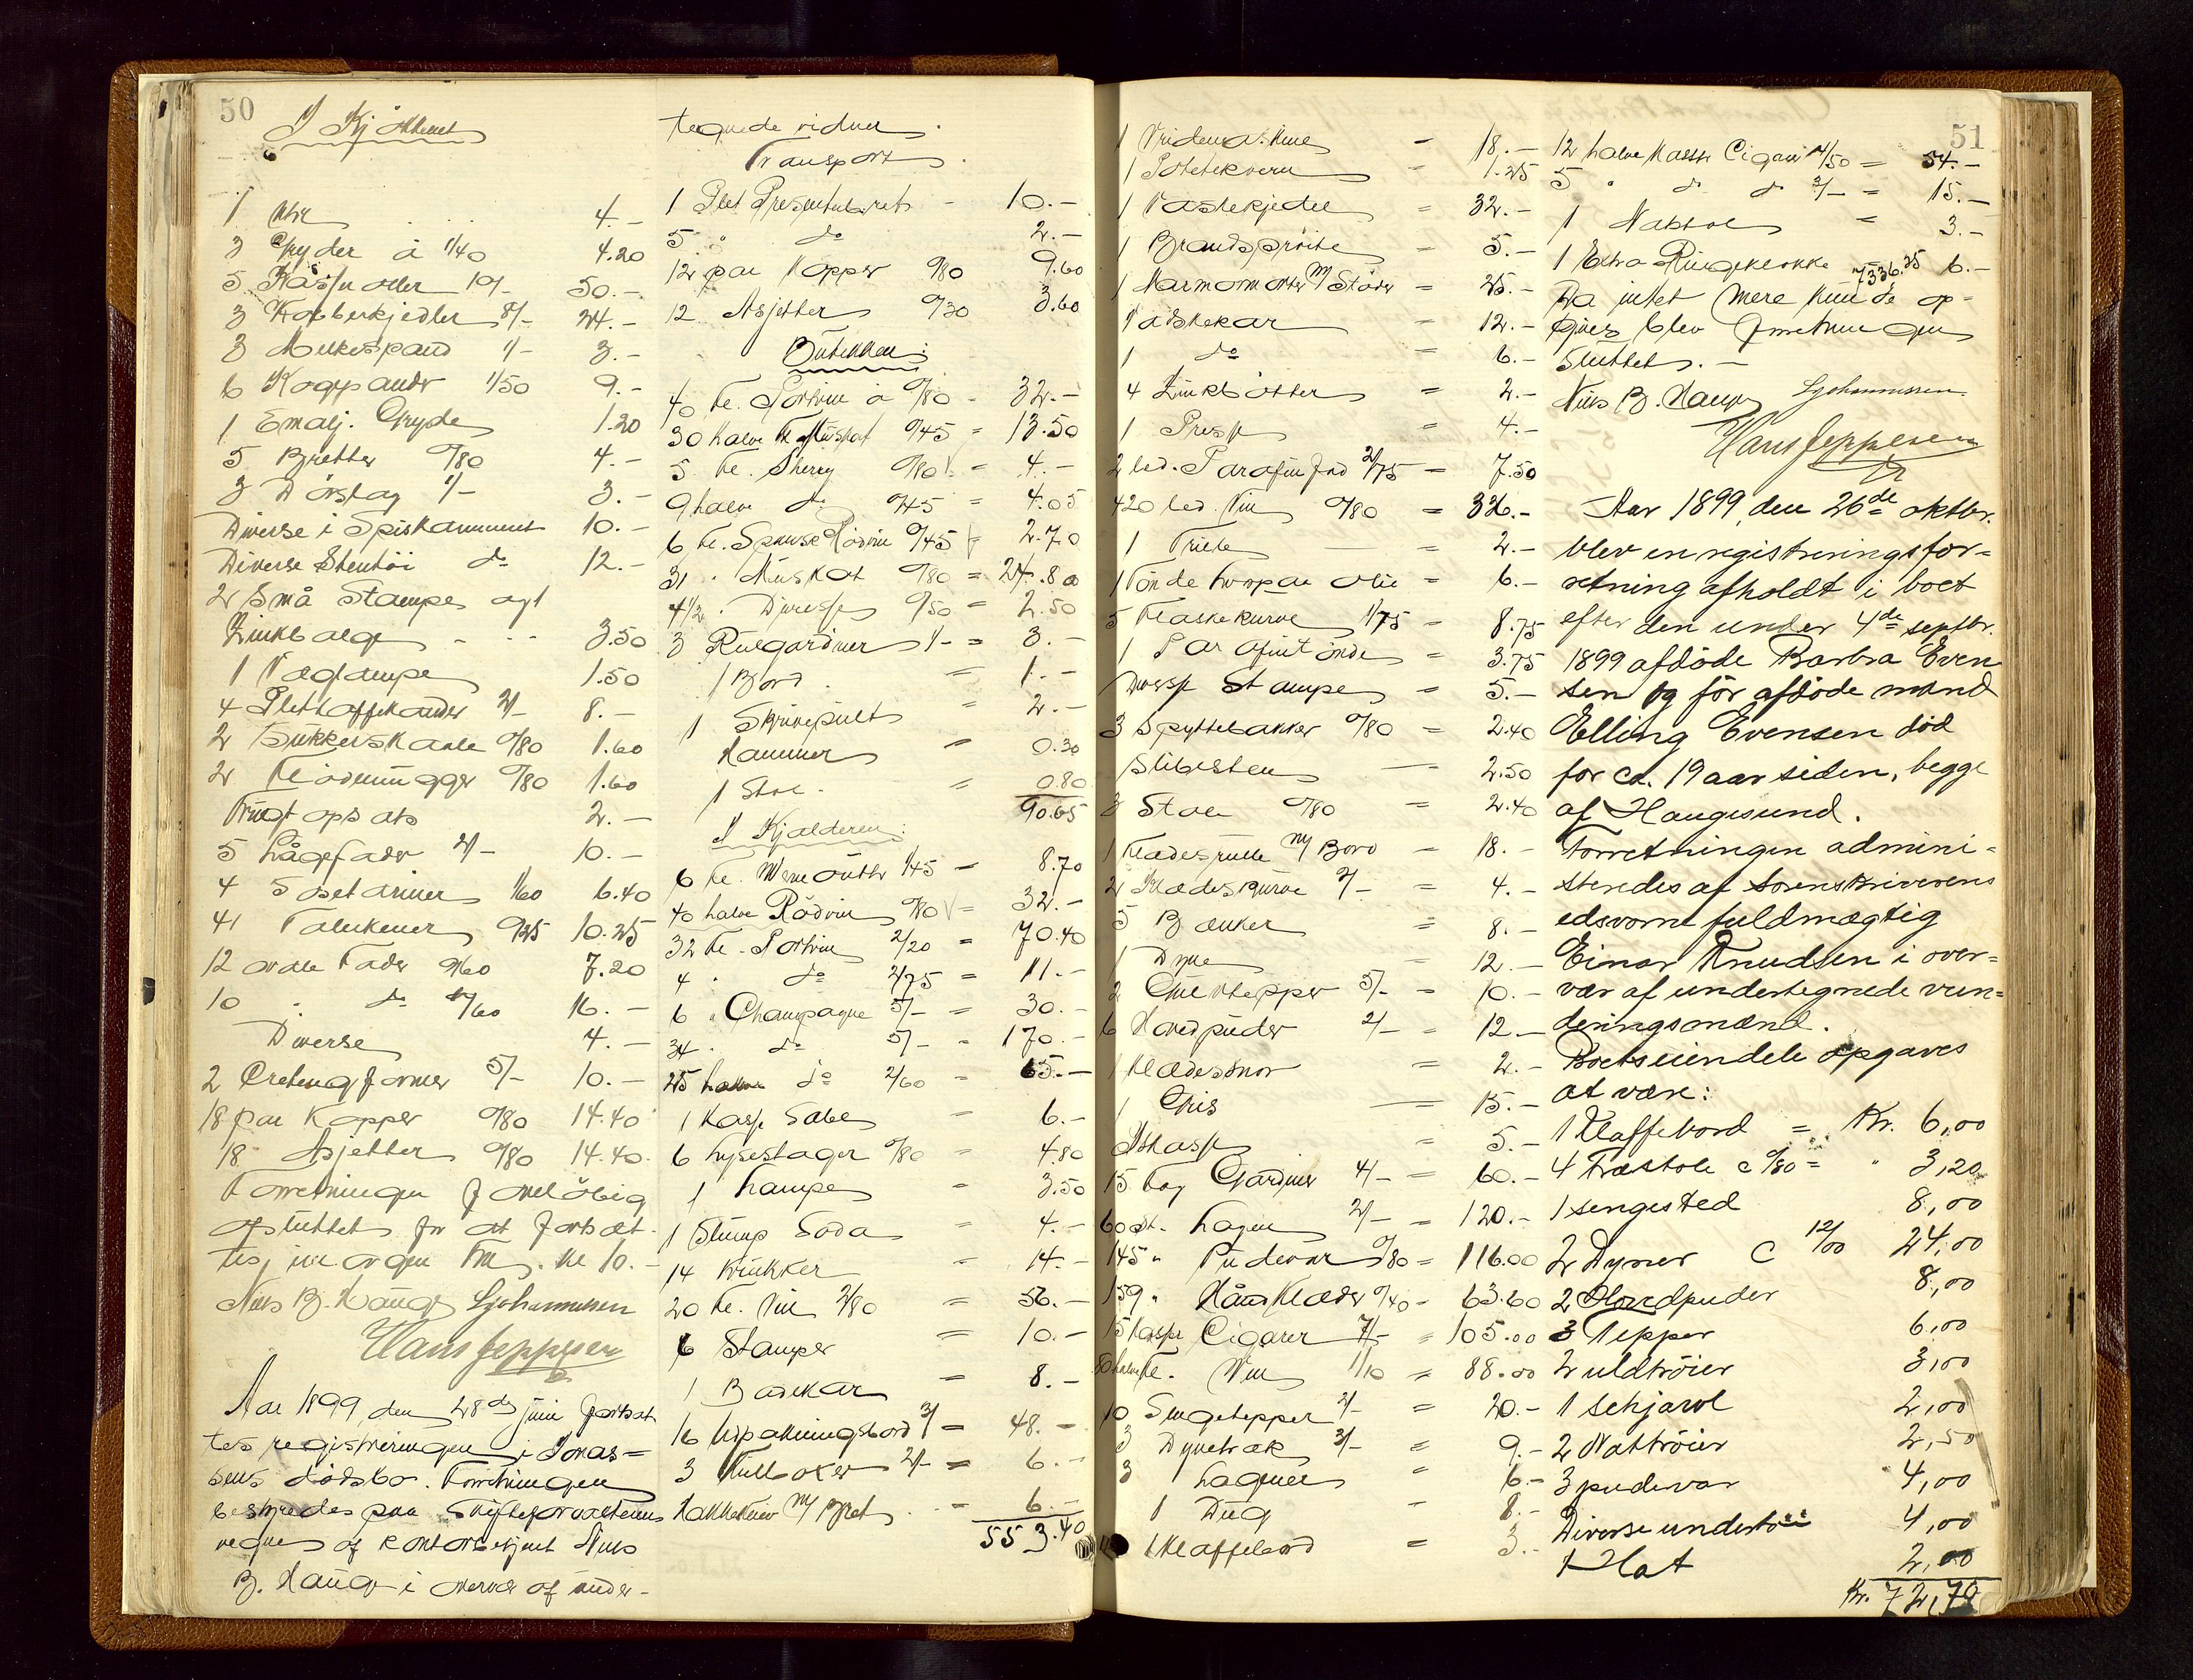 50
I Kjøkkenet
1 4.-
3 Gryder à 1/40 4.20
5 Kasseroller 10/- 50.-
3 Kobberkjedler 8/- 24.-
3 Melkespand 1/- 3.-
6 Kagepander 1/50 9.-
1 Emalj. Gryde 1.20
5 Bretter 0/80 4.-
3 Dørslag 1/- 3.-
Diverse i Spiskammeret 10.-
Diverse Stentöi do 12.-
2 Små Stamper og 1
Zinkbalge - - - 3.50
1 Væglampe 1.50
4 Plet Kaffekander 2/- 8.-
2 Sukkerskaale 0/80 1.60
2 Flödemugger 0/80 1.60
Frugtopsats 2.-
5 Lågefade 2/- 10.-
4 Soseteriner 1/60 6.40
41 Talerkener 0/25 10.25
12 ovale Fade 0/60 7.20
10 " do 1/60 16.-
Diverse 4.-
2 Cretengformer 5/- 10.-
18 par Kopper 0/80 14.40
18 Asjetter 0/80 14.40
Forretningen foreløbig
afsluttet for at fortsæt-
tes imorgen Fm. kl 10.-
Nils B. Hauge LJohannessen
Hans Jeppesen
Aar 1899, den 28de juni fortsat-
tes registreringen i Jonas=
sens dødsbo. Forretningen
bestyredes paa Skifteforvalterens
vegne af kontorbetjent Nils
B. Hauge i overvær af under-
tegnede vidner.
Transport
1 Plet Presenterbret - 10.-
5 " do 2.-
12 par Kopper 0/80 9.60
12 Asjetter 0/30 3.60
Butikken:
40 fl. Portvin à 0/80 - 32.-
30 halve fl Muskat 0/45 = 13.50
5 fl. Sherry 0/80 = 4.-
9 halve do 0/45 = 4.05
6 fl. Spansk Rødvin 0/45 = 2.70
31 " Muskat 0/80 = 24.80
4 1/2 " Diverse 0/50 = 2.50
3 Rulgardiner 1/- = 3.-
1 Bord = 1.-
1 Skrivepult = 2.-
Hammer = 0.30
1 Stol = 0.80
90.65
I Kjælderen:
6 fl. Vermouth 1/45 = 8.70
40 halve Rødvin 0/80 = 32.-
32 fl. Portvin 2/20 = 70.40
4 " do 2/75 = 11.-
6 " Champagne 5/- = 30.-
34 " do 5/- = 170.-
25 halve do 2/60 = 65.-
1 Kasse Sæbe = 6.-
6 Lysestager 0/80 = 4.80
1 Lampe = 3.50
1 Stump Soda = 4.-
14 Krukker = 14.-
20 fl. Vin 2/80 = 56.-
6 Stamper = 10.-
1 Badekar = 8.-
16 Udpakningsbord 3/ = 48.-
3 Kulloxer 2/- = 6.-
Hakkekniv m/ Bret = 6.-
553.40
51
1 Vridemaskine - 18.-
1 Potetekvern - 1.25
1 Vaskekjedel = 32.-
1 Brandsprøite = 5.-
1 Marmormorter m/ Støder = 25.-
1 Vaskekar = 12.-
1 do = 6.-
4 Zinkbøtter = 2.-
1 Presse = 4.-
2 bed. Parafinfad 2/75 = 7.50
420 bed. Vin 0/80 = 336.-
1 = 2.-
1 Tønde olie = 6.-
5 Flaskekurve 1/75 - 8.75
1 Parafintønde = 3.75
Diverse Stamper = 5.-
3 Spyttebakker 0/80 = 2.40
Slibesten = 2.50
3 Stole 0/80 = 2.40
1 Klædesrulle m/ Bord = 18.-
2 Klædeskurve 2/- = 4.-
5 Bænker = 8.-
1 Dyne = 12.-
2 Uldtepper 5/- = 10.-
6 Hovedpuder 2/- = 12.-
1 Klædessnor = 2.-
1 Gris = 15.-
Iskasse = 5.-
15 Fag Gardiner 4/- = 60.-
60 st. Lagen 2/- = 120.-
145 " Pudevar 0/80 = 116.00
159 " Håndklæder 0/40 = 63.60
15 kasser Cigarer 7/- = 105.00
80 halve fl. Vin 1/10 = 88.00
10 Sengetepper 2/- = 20.-
3 Dynetræk 3/- = 9.-
3 Lagener = 6.-
1 Dug = 8.-
1 Klaffebord = 3.-
12 halve Kasser Cigarer 4/50 = 54.-
5 " do do 3/- = 15.-
1 Natstol = 3.-
1 Extra Ringeklokke 6.-
7336.35
Da intet mere kunde op-
gives blev Forretningen
sluttet.-
Nils B. Hauge LJohannessen
Hans Jeppesen
Aar 1899, den 26de oktbr.
blev en registreringsfor=
retning afholdt i boet
efter den under 4de septbr.
1899 afdöde Barbra Even
sen og för afdöde mand
Elling Evensen död
for ca. 19 aar siden, begge
af Haugesund.
Forretningen admini=
streredes af Sorenskriverens
edsvorne fuldmægtig
Einar Knudsen i over=
vær af undertegnede vur=
deringsmænd.
Boets eiendele opgaves
at være:
1 Klaffebord = Kr. 6,00
4 Træstole à 0/80 = " 3,20
1 sengested 8,00
2 Dyner à 12/00 24,00
2 Hovedpuder 8,00
3 Tepper 6,00
2 uldtröier 3,00
1 schjavl 2,00
2 Nattröier 2,50
3 pudevar 4,00
Diverse undertöi 4,00
1 Hat 2,00
Kr. 72,70